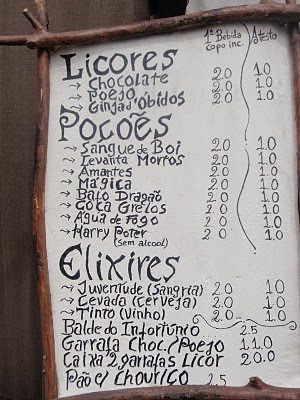 1ª Bebida Atesto
copo inc.
Licores
→ Chocolate 2.0 1.0
→ Poejo 2.0 1.0
→ Ginja d'Óbidos 2.0 1.0
Poções
→ Sangue de Boi 2.0 1.0
→ Levanta Mortos 2.0 1.0
→ Amantes 2.0 1.0
→ Mágica 2.0 1.0
→ Bafo Dragão 2.0 1.0
→ Coça Grelos 2.0 1.0
→ Água de Fogo 2.0 1.0
→ Harry Poter 2.0 1.0
(sem alcool)
Elixires
→ Juventude (Sangria) 2.0 1.0
→ Cevada (Cerveja) 2.0 1.0
→ Tinto (Vinho) 2.0 1.0
Balde do Infortúnio 2.5
Garrafa Choc./Poejo 11.0
Caixa 2 garrafas Licor 20.0
Pão c/ Chouriço 2.5